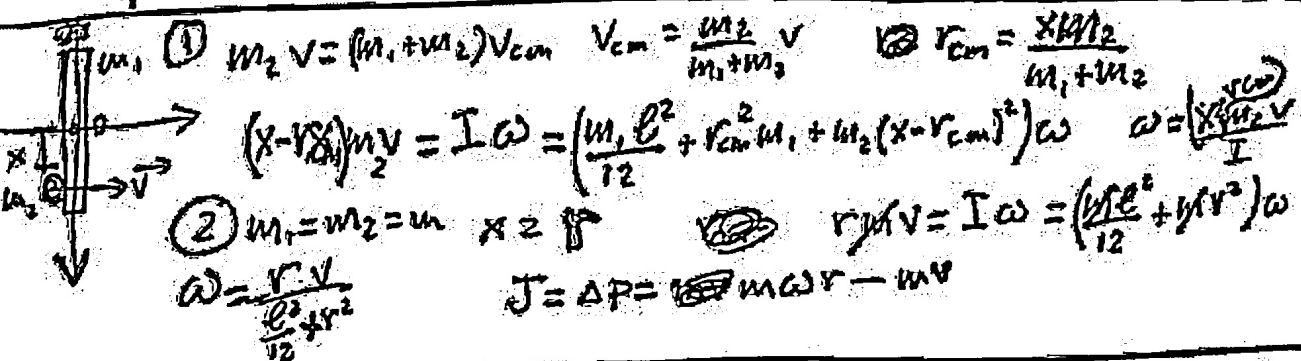 m₁ ① m₂ v = (m₁+m₂)V_cm V_cm = m₂/(m₁+m₂) v r_cm = xm₂/(m₁+m₂)
0
(x-r_cm)m₂v = Iω = (m₁ℓ²/12 + r_cm² m₁ + m₂(x-r_cm)²)ω ω = (x-r_cm)m₂v/I
x
m₂ v⃗
② m₁=m₂=m x = r rmv = Iω = (mℓ²/12 + mr²)ω
ω = r·v/(ℓ²/12 + r²) J = Δp = mωr - mv